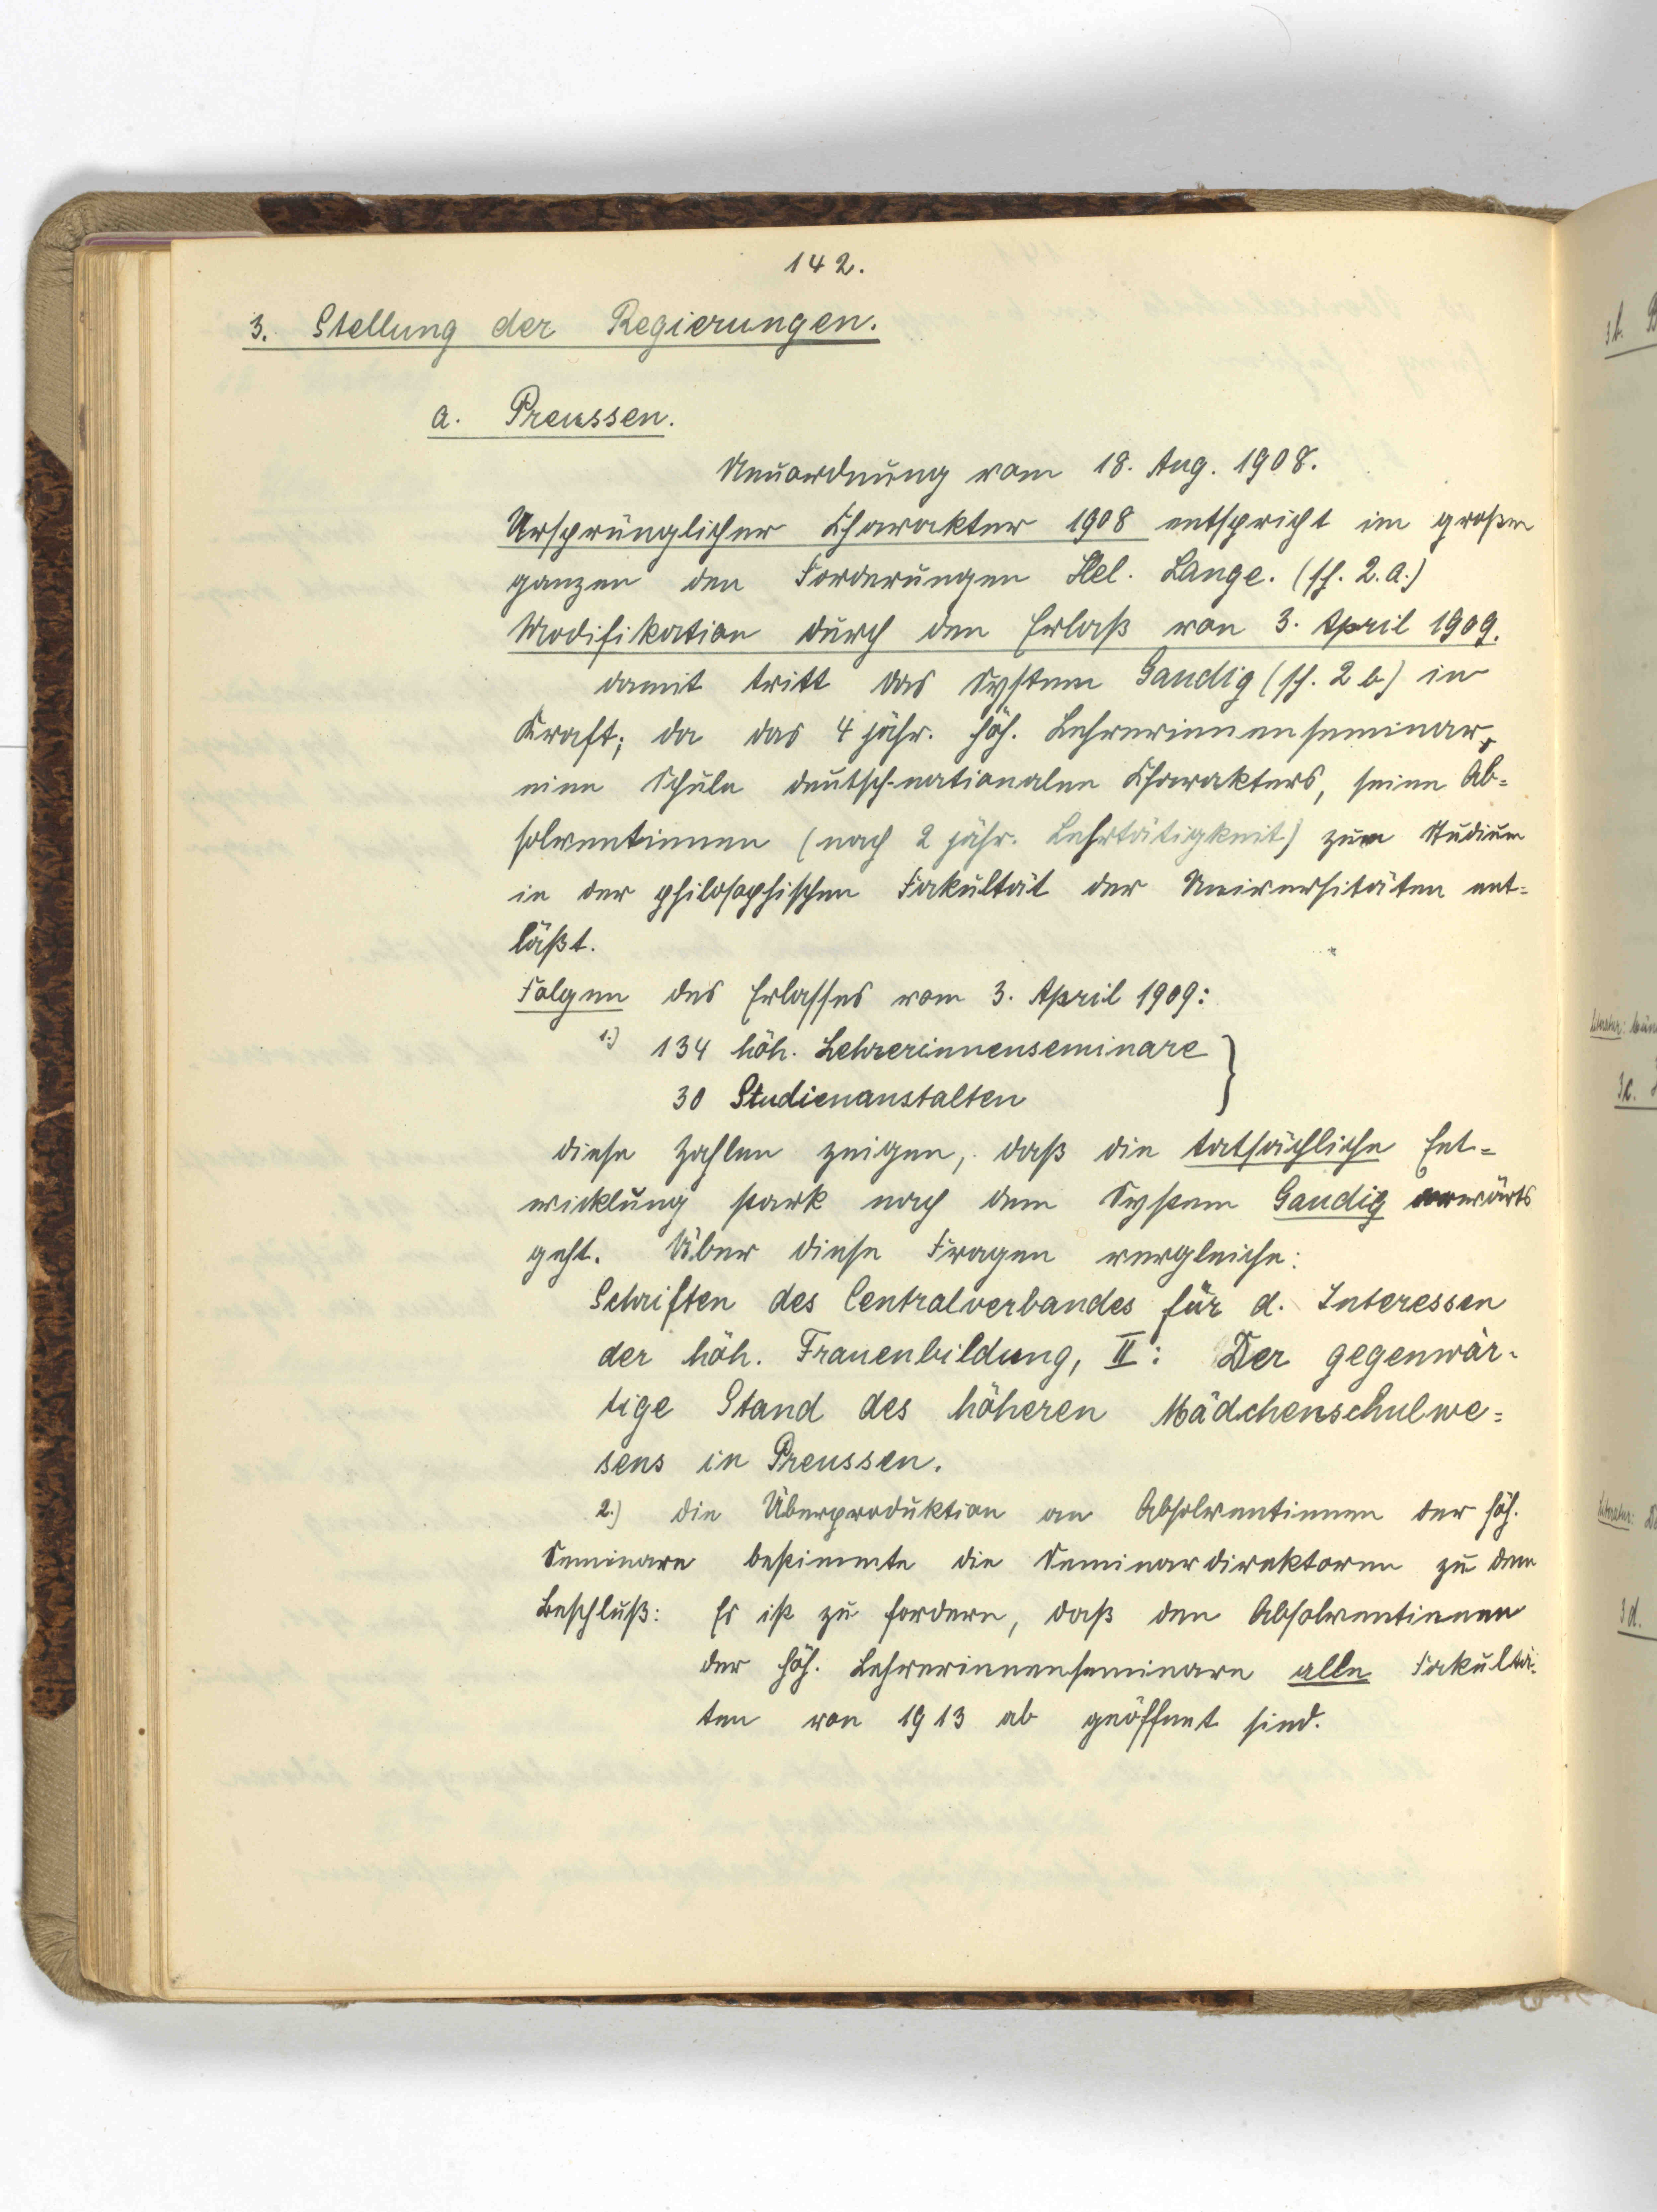 142.
3. Stellung der Regierungen.
a. Preussen.
Neuordnung vom 18. Aug. 1908.
Ursprünglicher Charakter 1908 entspricht im großen
ganzen den Forderungen Hel. Lange. (sh. 2. a.)
Modifikation durch den Erlaß von 3. April 1909.
damit tritt das System Gaudig (sh. 2 b) in
Kraft; da das 4 jähr. höh. Lehrerinnenseminar,
eine Schule deutsch-nationalen Charakters, seine Ab=
solventinnen (nach 2 jähr. Lehrtätigkeit) zum Studium
in der philosophischen Fakultät der Universitäten ent=
läßt.
Folgen des Erlasses vom 3. April 1909:
1.) 134 höh. Lehrerinnenseminare }
30 Studienanstalten
diese Zahlen zeigen, daß die tatsächliche Ent=
wicklung stark nach dem System Gaudig vorwärts
geht. Über diese Fragen vergleiche:
Schriften des Centralverbandes für d. Interessen
der höh. Frauenbildung, II: Der gegenwär-
tige Stand des höheren Mädchenschulwe=
sens in Preussen.
2.) die Überproduktion an Absolventinnen der höh.
Seminare bestimmte die Seminardirektoren zu dem
Beschluß: Es ist zu fordern, daß den Absolventinnen
der höh. Lehrerinnenseminare alle Fakultä-
ten von 1913 ab geöffnet sind.
3b. B
Literatur:
3c.
Literatur:
3d.